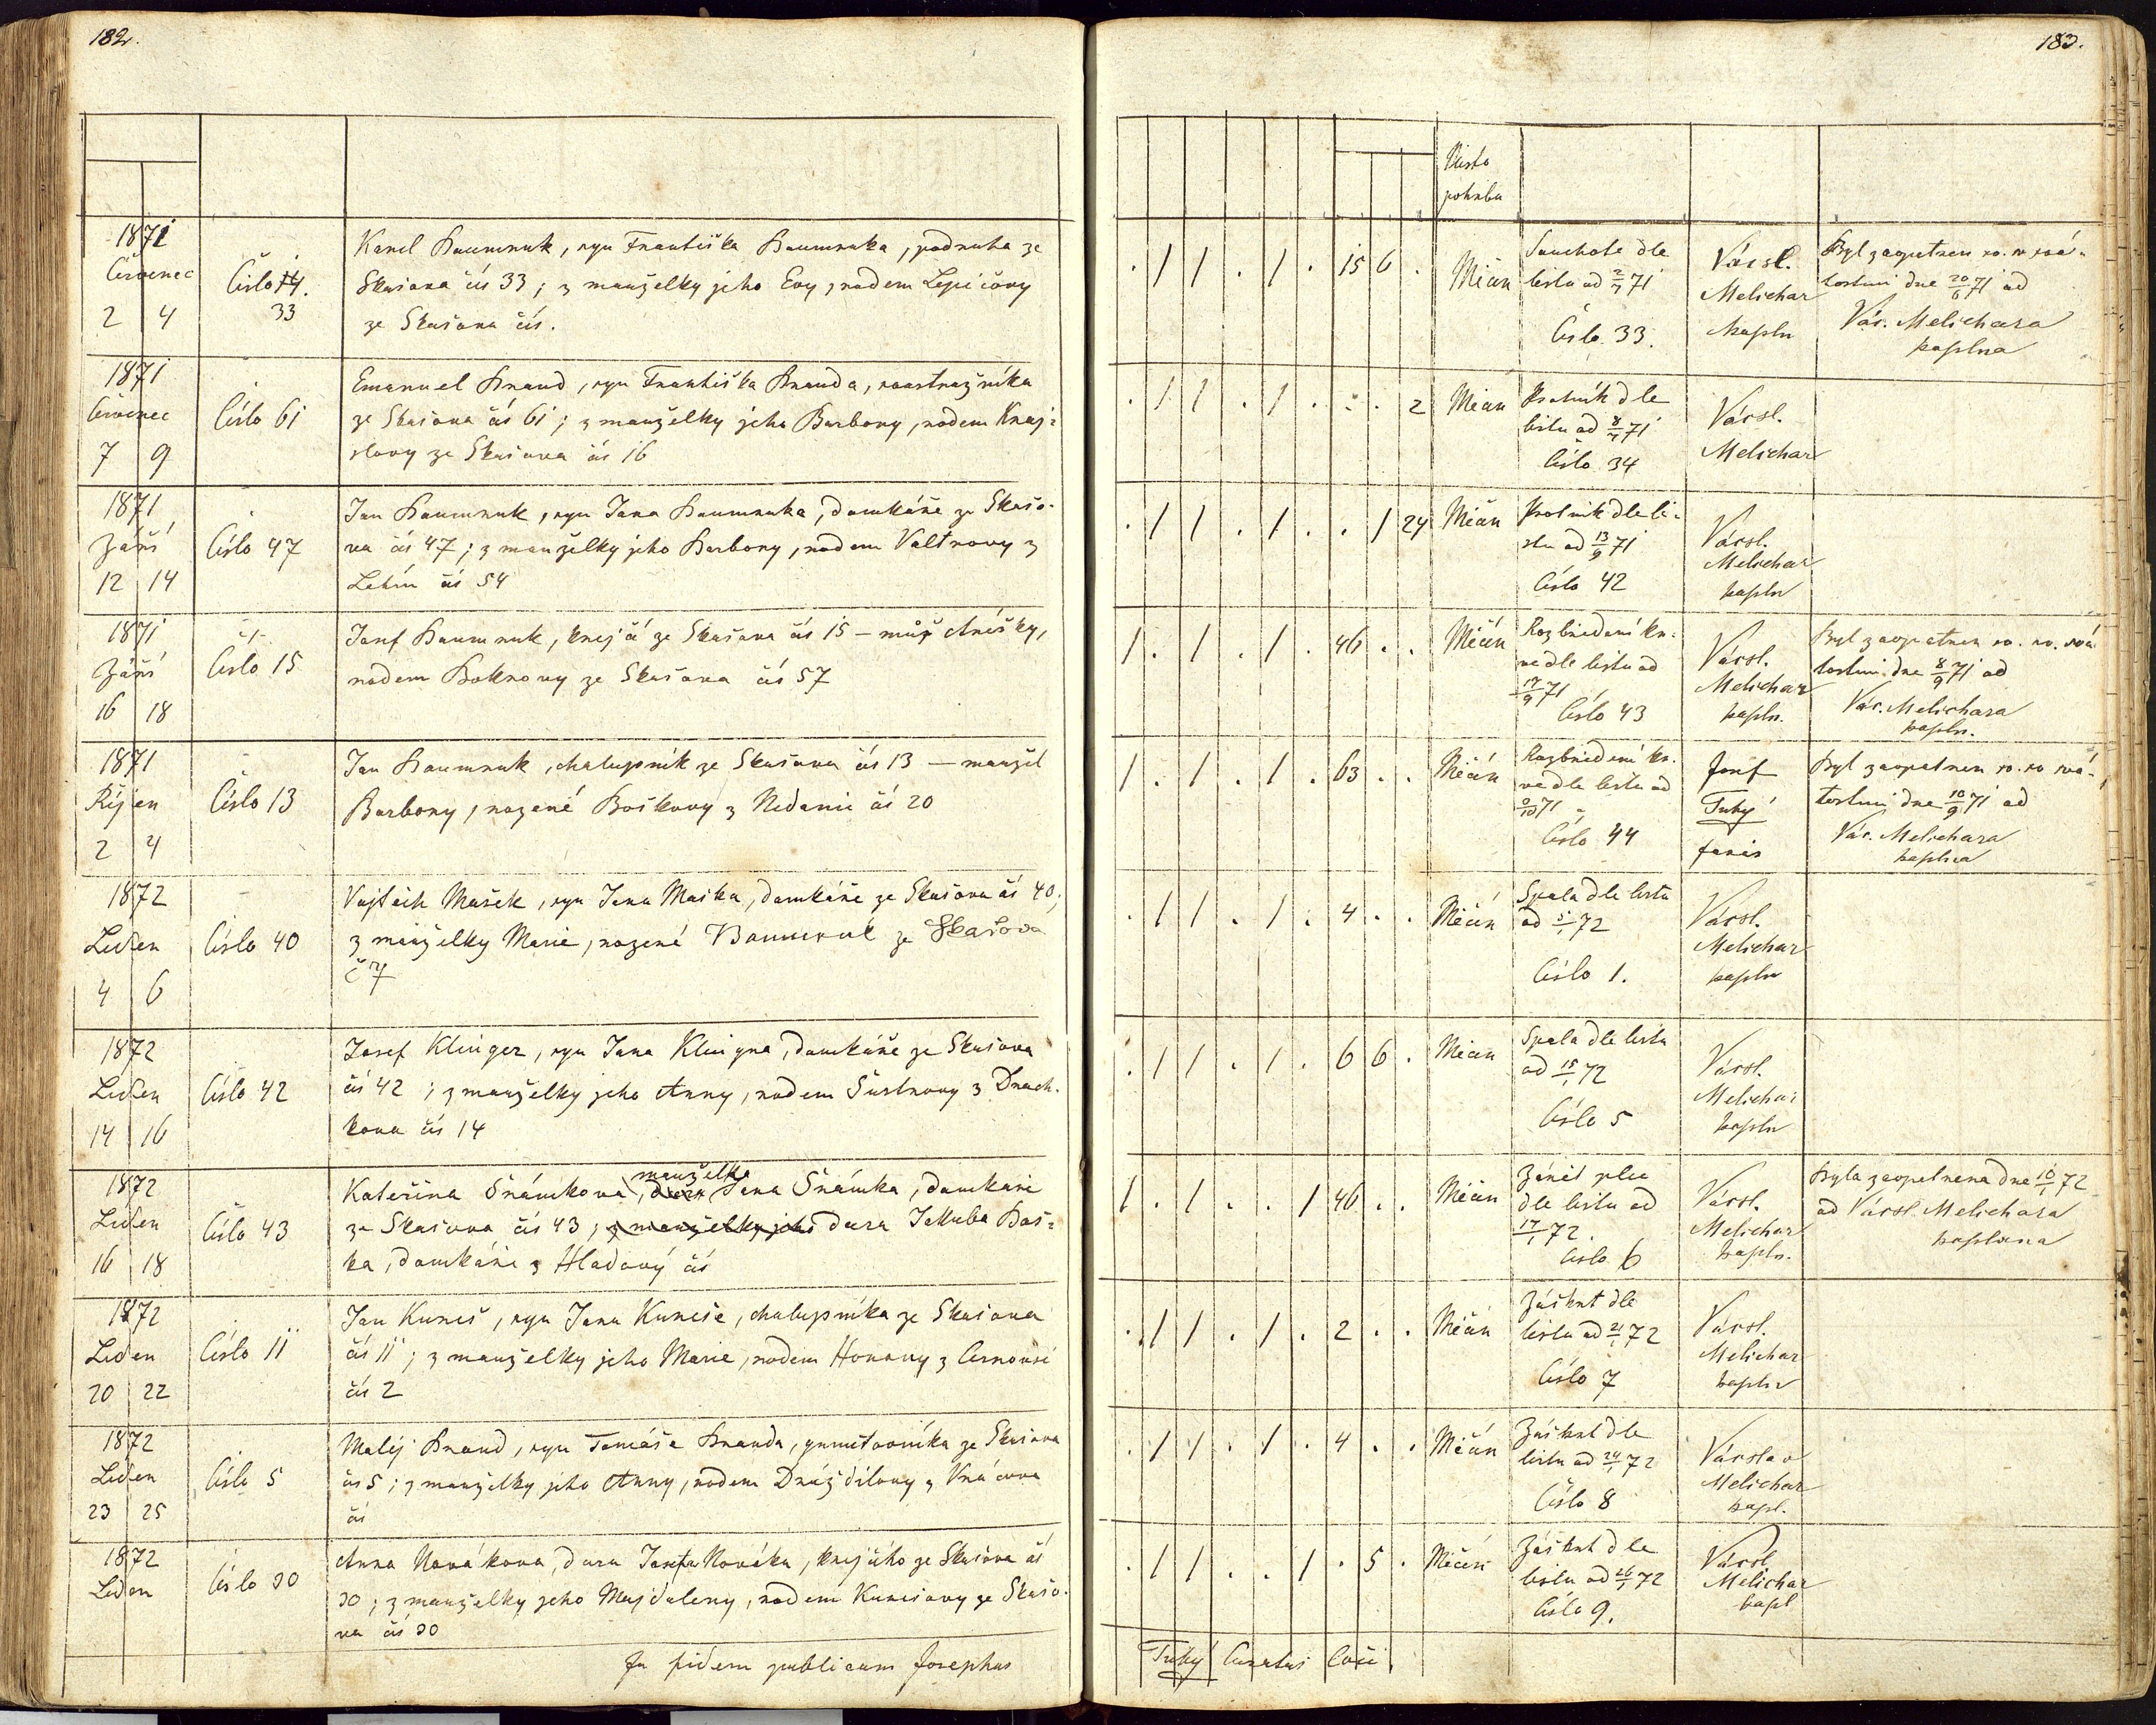 182.
1871
Červenec
2 4
Číslo 14.
33
Karel Baumruk, syn Františka Baumruka, podruha ze
Skašova čís 33; z manželky jeho Evy, rodem Lepičovy
ze Skašova čís.
1871
Červenec
7 9
Číslo 61
Emanuel Brand, syn Františka Branda,
ze Skašova čís 61; z manželky jeho Barbory, rodem Krej-
slovy ze Skašova čís 16
1871
Záři
12 14
Číslo 47
Jan Baumruk, syn Jana Baumruka, domkáře ze Skašo-
va čís 47; z manželky jeho Barbory, rodem Valtrovy z
čís 54
1871
Záři
16 18
Číslo 15
Josef Baumruk, krejčí ze Skašova čís 15 – muž Anežky,
rodem ze Skašova čís 57
1871
Říjen
2 4
Číslo 13
Jan Baumruk, chalupník ze Skašova čís 13 — manžel
Barbory, rozené Boškovy z Nedanic čís 20
1872
Leden
4 6
Číslo 40
Vojtěch Mašek, syn Jana Maška, domkáře ze Skašova čís 40;
z manželky Marie, rozené Baumruk ze Skašova
č 7
1872
Leden
14 16
Číslo 42
Josef Klinger, syn Jana Klingra, domkáře ze Skašova
čís 42; z manželky jeho Anny, rodem Šustrovy z Drach-
kova čís 14
1872
Leden
16 18
Číslo 43
manželka
Kateřina Šrámkova, dcera Jana Šrámka, domkáře
ze Skašova čís 43; z manželky jeho dcera Jakuba Boš-
ka, domkáře z Hladový čís
1872
Leden
20 22
Číslo 11
Jan Kuneš, syn Jana Kuneše, chalupníka ze Skašova
čís 11; z manželky jeho Marie, rodem Honovy z
čís 2
1872
Leden
23 25
Číslo 5
Matěj Brand, syn Tomáše Branda, gruntovníka ze Skašova
čís 5; z manželky jeho Anny, rodem Dráždilovy z
čís
1872
Leden
Číslo 30
Anna Novákova, dcera Josefa Nováka, krejčího ze Skašova čís
30; z manželky jeho Majdaleny, rodem Kunešovy ze Skašo-
va čís 30
In fidem publicam Josephus
183.
Místo
pohřbu
. / / . / . 15 6 .
Měčín
Souchotě dle
listu od 2/7 71
Číslo 33.
Vácsl.
Melichar
kapln
Byl zaopatřen sv. svá-
tostmi dne 20/6 71 od
Vác. Melichara
kaplna
. / / . / . . . 2
Měčín
Psotník dle
listu od 8/7 71
Číslo 34
Vácsl.
Melichar
. / / . / . . 1 24
Měčín
Psotník dle li-
stu od 13/9 71
Číslo 42
Vácsl.
Melichar
kapln
/ . / . / . 46 . .
Měčín
Rozbředění kr-
ve dle listu od
17/9 71
Číslo 43
Vácsl.
Melichar
kapln.
Byl zaopatřen sv. svá-
tostmi dne 8/9 71 od
Vác. Melichara
kapln.
/ . / . / . 63 . .
Měčín
Rozbředění kr-
ve dle listu od
Číslo 44
Josef
Tuhý
farář
Byl zaopatřen sv. svá-
tostmi dne 10/9 71 od
Vác. Melichara
kaplna
. / / . / . 4 . .
Měčín
Spála dle listu
od 5/1 72
Číslo 1.
Vácsl.
Melichar
kapln
. / / . / . 6 6 .
Měčín
Spála dle listu
od 15/1 72
Číslo 5
Vácsl.
Melichar
kapln
/ . / . . / 46 . .
Měčín
Zánět plic
dle listu od
17/1 72.
Číslo 6
Vácsl.
Melichar
kapln.
Byla zaopatřena dne 10/1 72
od Vácsl. Melichara
kaplana
. / / . / . 2 . .
Měčín
Záškrt dle
listu od 21/1 72
Číslo 7
Vácsl.
Melichar
kapln
. / / . / . 4 . .
Měčín
Záškrt dle
listu od 24/1 72
Číslo 8
Václav
Melichar
kapl.
. / / . . / . 5 .
Měčín
Záškrt dle
listu od 26/1 72
Číslo 9.
Vácsl.
Melichar
kapl
Tuhý Curatus Loci.